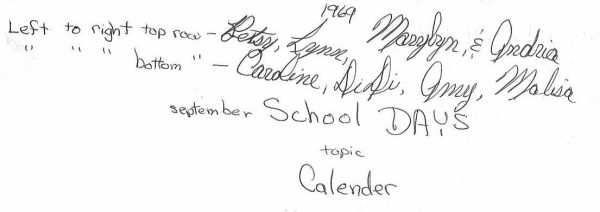 1969
Left to right top row - Betsy, Lynn, Marylyn, & Andria
" " " bottom " - Caroline, DiDi, Amy, Malisa
september School DAYS
topic
Calender